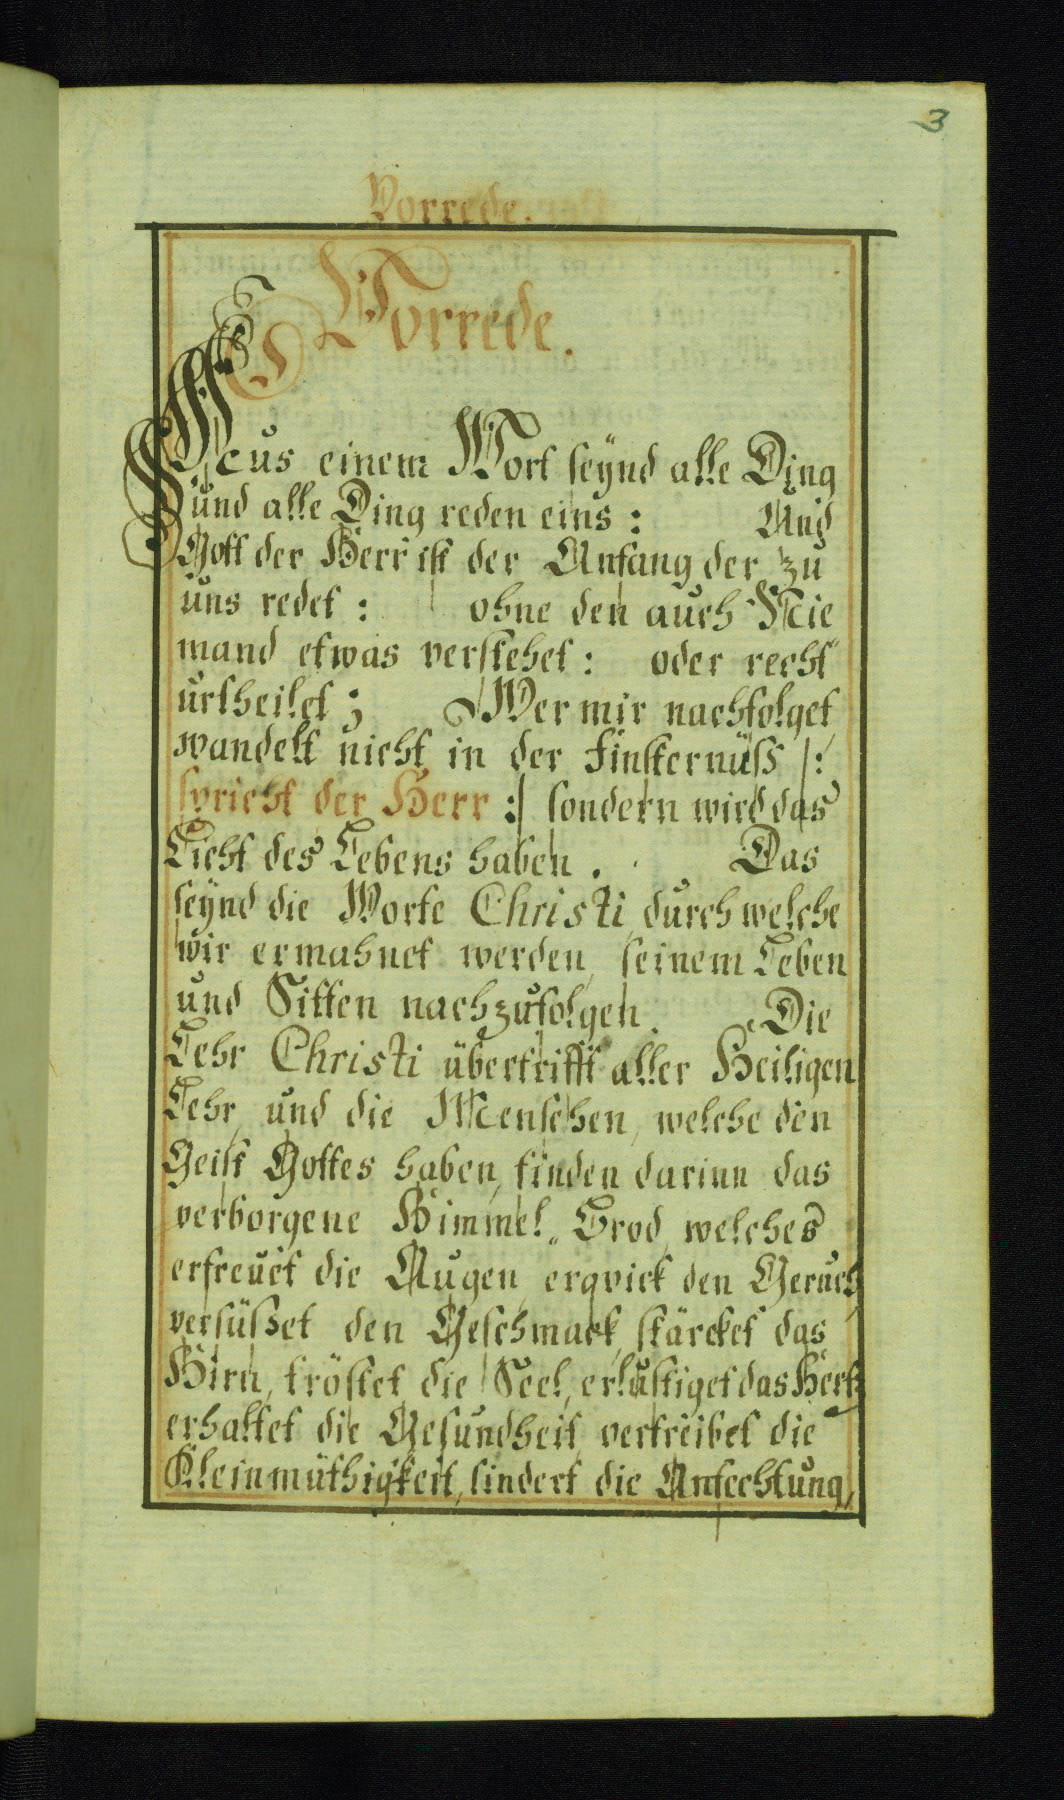 3
Vorrede.
Vorrede.
Aus einem Wort seÿnd alle Ding
und alle Ding reden eins : Und
Gott der Herr ist der Anfang der zu
uns redet : ohne den auch Nie
mand etwas verstehet : oder recht
urtheilet ; Wer mir nachfolget
wandelt nicht in der Finsternüß /:
spricht der Herr :/ sondern wird das
Licht des Lebens haben . Das
seÿnd die Worte Christi, durch welche
wir ermahnet werden, seinem Leben
und Sitten nachzufolgen. Die
Lehr Christi übertrifft aller Heiligen
Lehr, und die Menschen, welche den
Geist Gottes haben, finden darinn das
verborgene Himmel„ Brod, welches
erfreuet die Augen, erqvickt den Geruch,
versüßet den Geschmack, stärcket das
Hirn, tröstet die Seel, erlustiget das Hertz
erhaltet die Gesundheit, vertreibet die
Kleinmüthigkeit, lindert die Anfechtung,